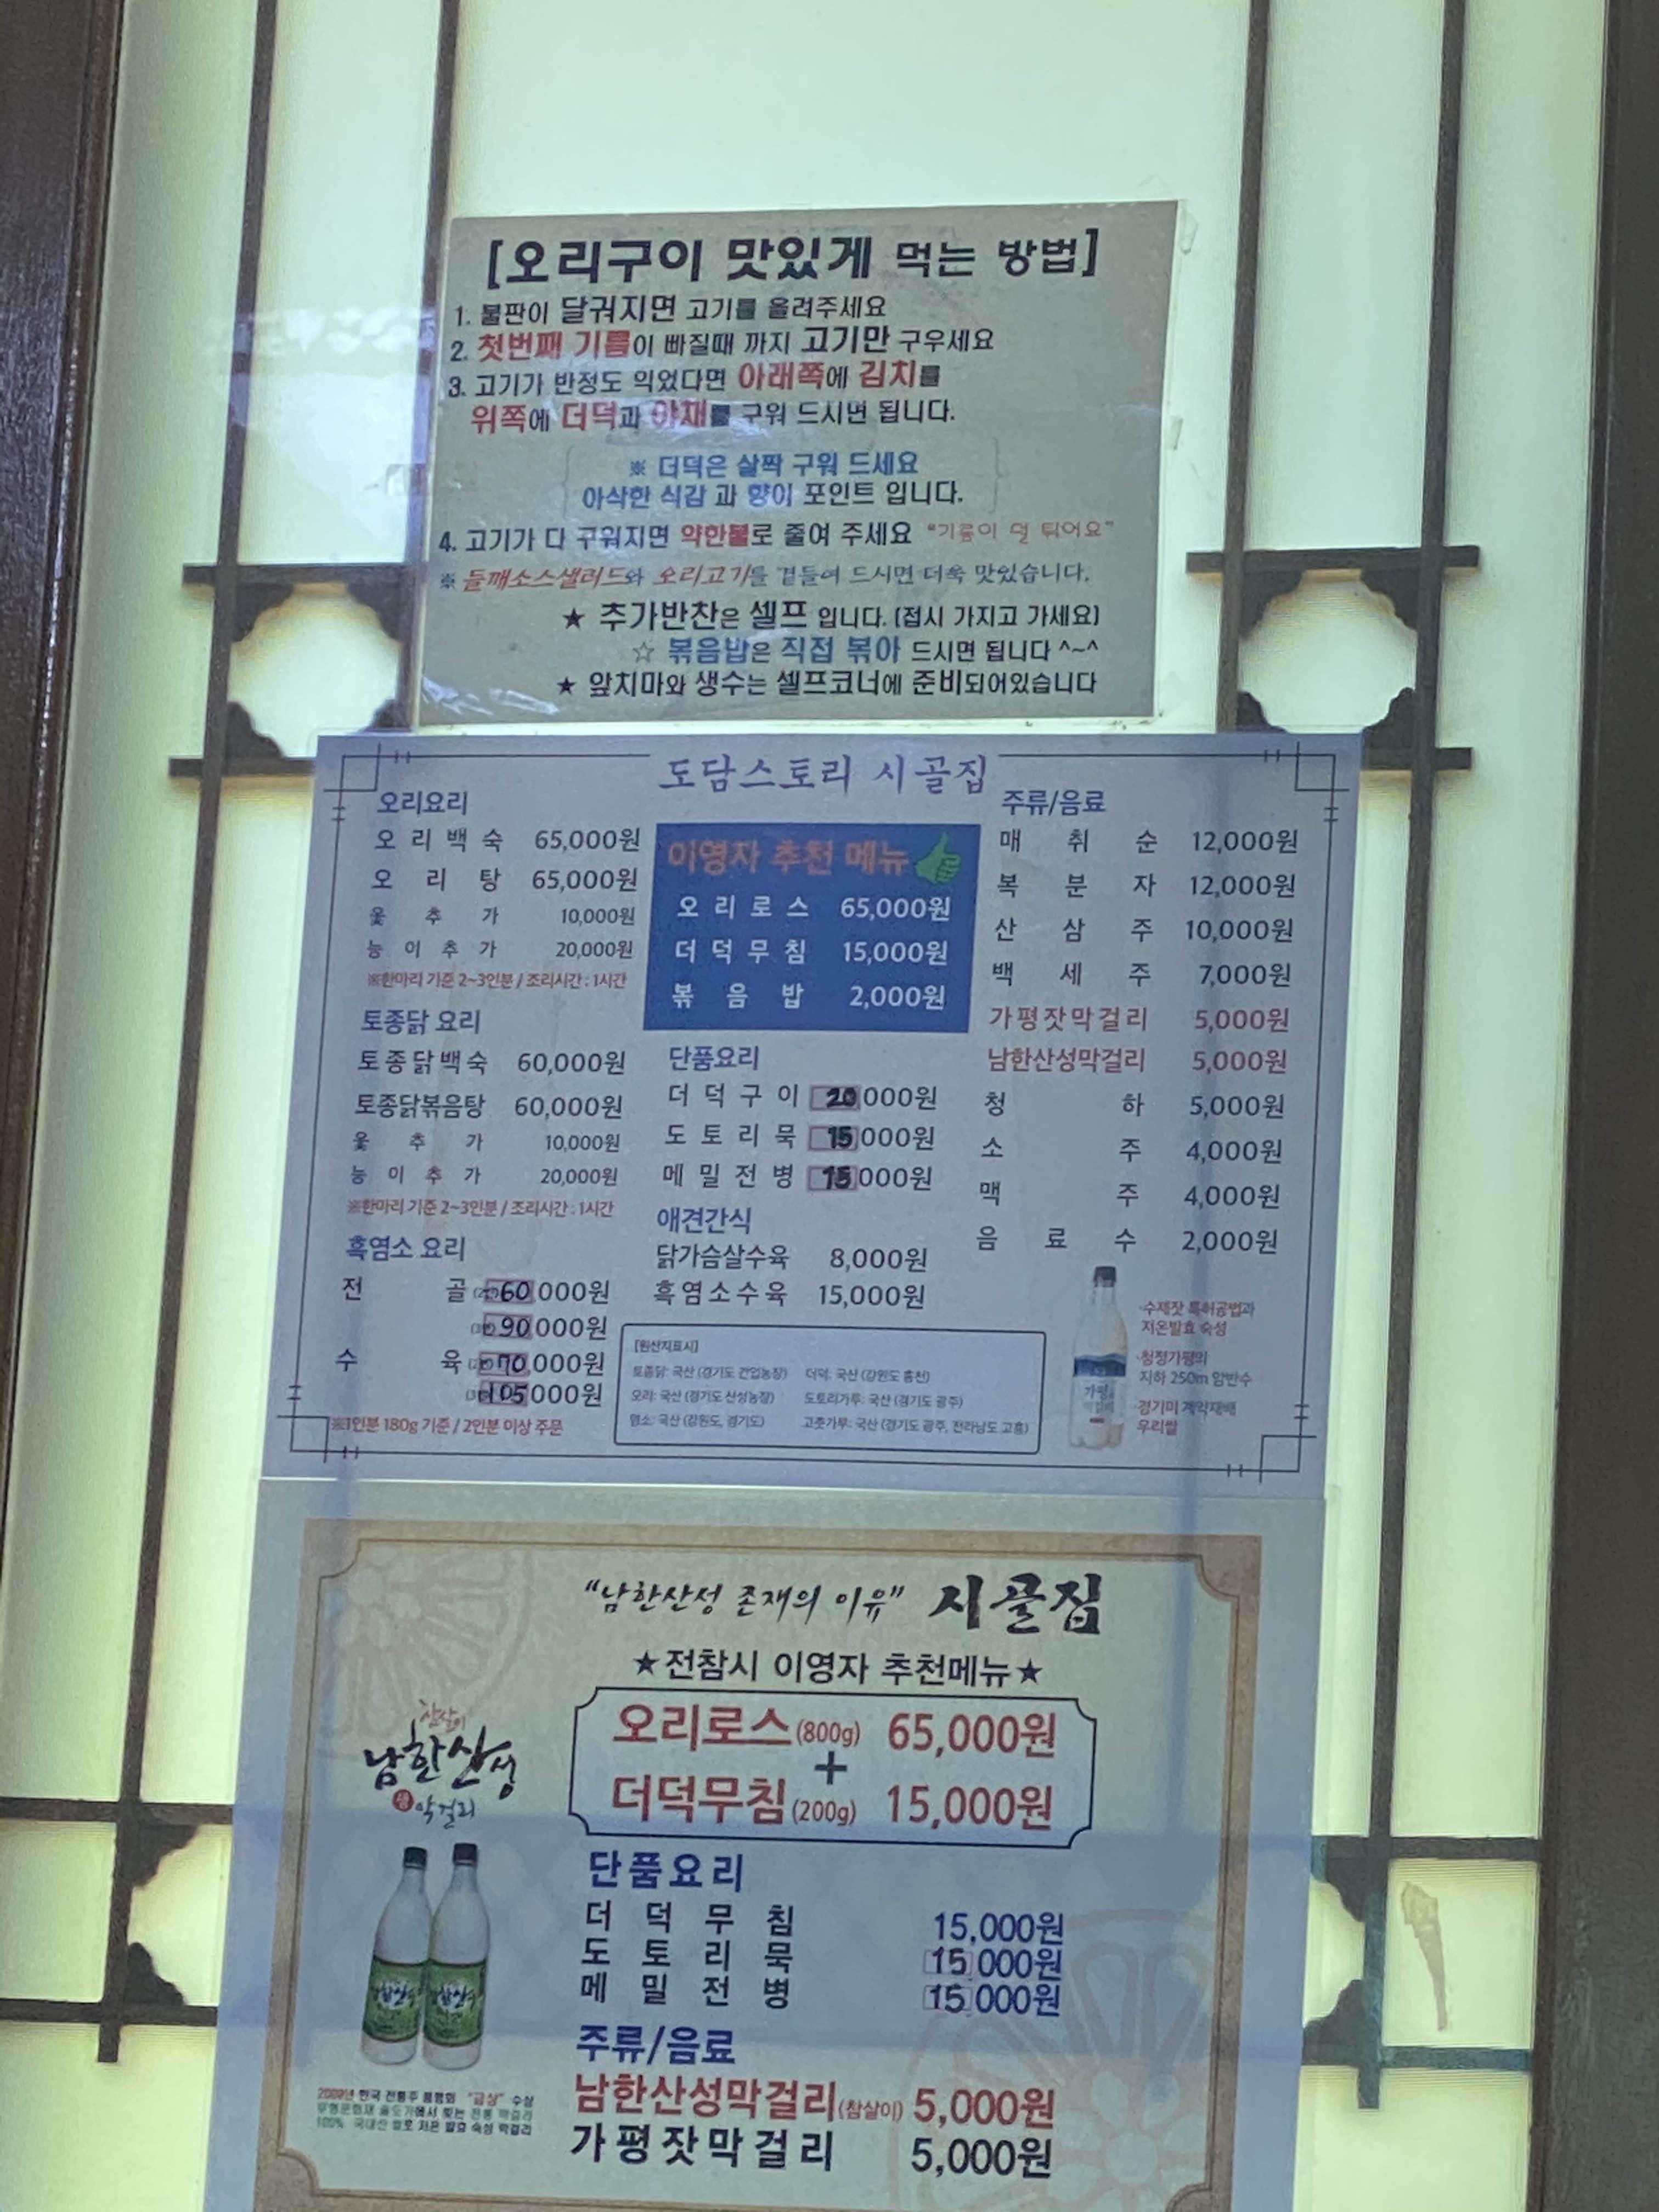 [오리구이 맛있게 먹는 방법]
1. 불판이 달궈지면 고기를 올려주세요
2. 첫번째 기름이 빠질때 까지 고기만 구우세요
3. 고기가 반정도 익었다면 아래쪽에 김치를
위쪽에 더덕과 야채를 구워 드시면 됩니다.
※ 더덕은 살짝 구워 드세요
아삭한 식감 과 향이 포인트 입니다.
4. 고기가 다 구워지면 약한불로 줄여 주세요 "기름이 덜 튀어요"
※ 들깨소스샐러드와 오리고기를 곁들여 드시면 더욱 맛있습니다.
★ 추가반찬은 셀프 입니다. (접시 가지고 가세요)
☆ 볶음밥은 직접 볶아 드시면 됩니다 ^~^
★ 앞치마와 생수는 셀프코너에 준비되어있습니다
도담스토리 시골집
오리요리
오리백숙 65,000원
오리탕 65,000원
옻추가 10,000원
능이추가 20,000원
※한마리 기준 2~3인분 / 조리시간 : 1시간
토종닭 요리
토종닭백숙 60,000원
토종닭볶음탕 60,000원
옻추가 10,000원
능이추가 20,000원
※한마리 기준 2~3인분 / 조리시간 : 1시간
흑염소 요리
전골 60,000원
90,000원
수육 70,000원
105,000원
※1인분 180g 기준 / 2인분 이상 주문
이영자 추천 메뉴
오리로스 65,000원
더덕무침 15,000원
볶음밥 2,000원
단품요리
더덕구이 20,000원
도토리묵 15,000원
메밀전병 15,000원
애견간식
닭가슴살수육 8,000원
흑염소수육 15,000원
[원산지표시]
토종닭: 국산 (경기도 건업농장) 더덕: 국산 (강원도 홍천)
오리: 국산 (경기도 산성농장) 도토리가루: 국산 (경기도 광주)
염소: 국산 (강원도, 경기도) 고춧가루: 국산 (경기도 광주, 전라남도 고흥)
주류/음료
매취순 12,000원
복분자 12,000원
산삼주 10,000원
백세주 7,000원
가평잣막걸리 5,000원
남한산성막걸리 5,000원
청하 5,000원
소주 4,000원
맥주 4,000원
음료수 2,000원
·수제잣 특허공법과
저온발효 숙성
·청정가평의
지하 250m 암반수
·경기미 계약재배
우리쌀
가평
"남한산성 존재의 이유" 시골집
★전참시 이영자 추천메뉴★
오리로스(800g) 65,000원
+
더덕무침(200g) 15,000원
참살이
남한산성
생막걸리
단품요리
더덕무침 15,000원
도토리묵 15,000원
메밀전병 15,000원
주류/음료
남한산성막걸리(참살이) 5,000원
가평잣막걸리 5,000원
2009년 한국 전통주 품평회 "금상" 수상
무형문화재 술도가에서 빚는 전통 막걸리
100% 국내산 쌀로 저온 발효 숙성 막걸리